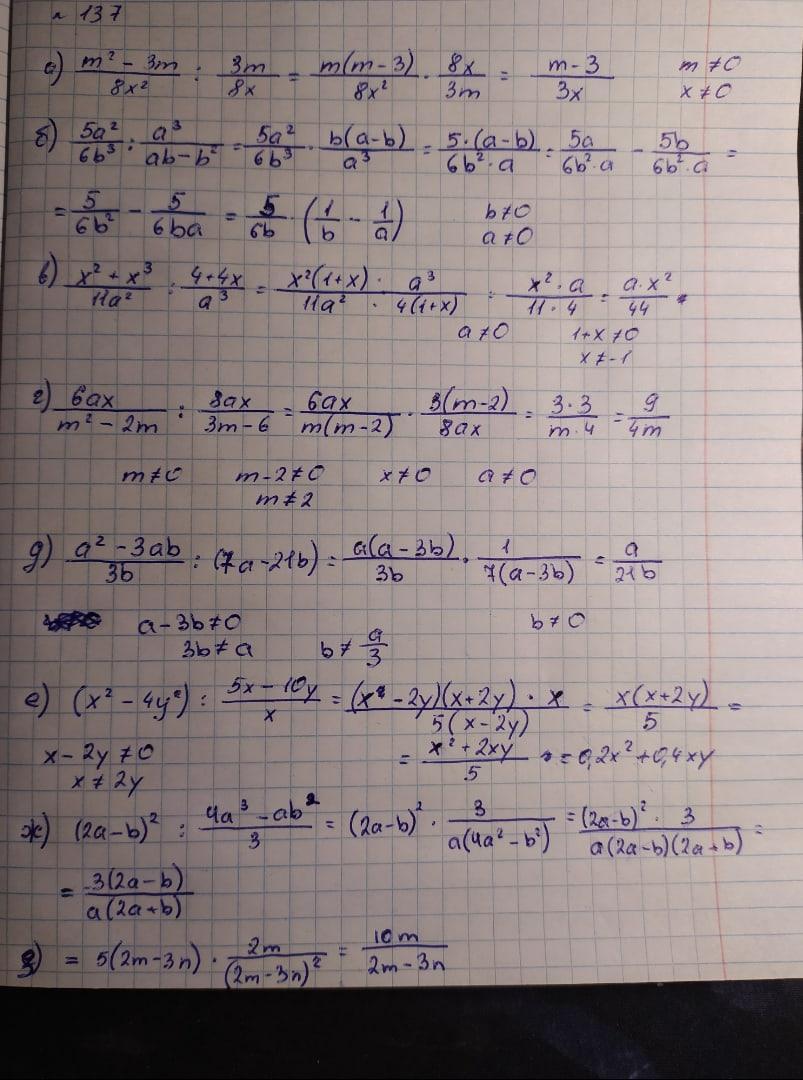 № 137
а) (m² - 3m)/(8x²) : (3m)/(8x) = (m(m-3))/(8x²) · (8x)/(3m) = (m-3)/(3x)   m ≠ 0
x ≠ 0
б) (5a²)/(6b³) : (a³)/(ab-b²) = (5a²)/(6b³) · (b(a-b))/(a³) = (5·(a-b))/(6b²·a) = (5a)/(6b²·a) - (5b)/(6b²·a) =
= 5/(6b²) - 5/(6ba) = 5/(6b) · (1/b - 1/a)   b≠0
a≠0
в) (x² + x³)/(11a²) : (4+4x)/(a³) = (x²(1+x) · a³)/(11a² · 4(1+x)) = (x²·a)/(11·4) = (a·x²)/44
a≠0   1+x≠0
x≠-1
г) (6ax)/(m² - 2m) : (8ax)/(3m-6) = (6ax)/(m(m-2)) · (3(m-2))/(8ax) = (3·3)/(m·4) = 9/(4m)
m≠0   m-2≠0   x≠0   a≠0
m≠2
д) (a² - 3ab)/(3b) : (7a-21b) = (a(a-3b))/(3b) · 1/(7(a-3b)) = a/(21b)
a-3b≠0   b≠0
3b≠a   b≠a/3
е) (x² - 4y²) : (5x-10y)/x = ((x-2y)(x+2y)·x)/(5(x-2y)) = (x(x+2y))/5 =
x-2y≠0   = (x²+2xy)/5 = 0,2x²+0,4xy
x≠2y
ж) (2a-b)² : (4a³-ab²)/3 = (2a-b)² · 3/(a(4a²-b²)) = ((2a-b)²·3)/(a(2a-b)(2a+b)) =
= (3(2a-b))/(a(2a+b))
з) = 5(2m-3n) · (2m)/((2m-3n)²) = (10m)/(2m-3n)